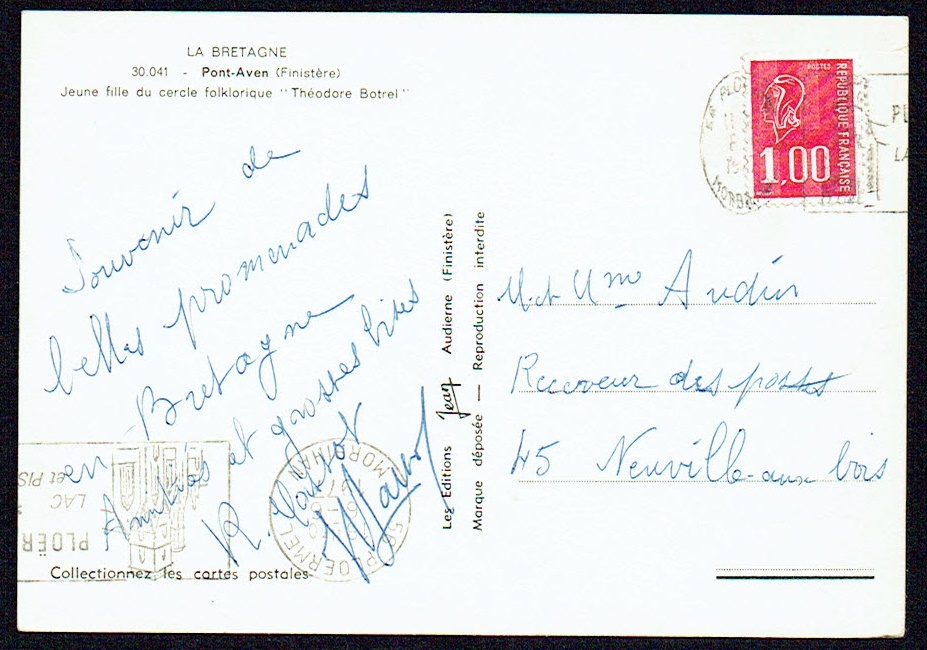 LA BRETAGNE
30.041 - Pont-Aven (Finistère)
Jeune fille du cercle folklorique "Théodore Botrel"
Souvenir de
belles promenades
en Bretagne
Amitiés et grosses bises
R.
Les Editions Jean Audierne (Finistère)
Marque déposée — Reproduction interdite
Collectionnez les cartes postales
POSTES
REPUBLIQUE FRANÇAISE
1,00
M. et Mme Audin
Receveur des postes
45 Neuville-aux bois
PLOERMEL
MORBIHAN
56
LAC
et PIS
PLOËR